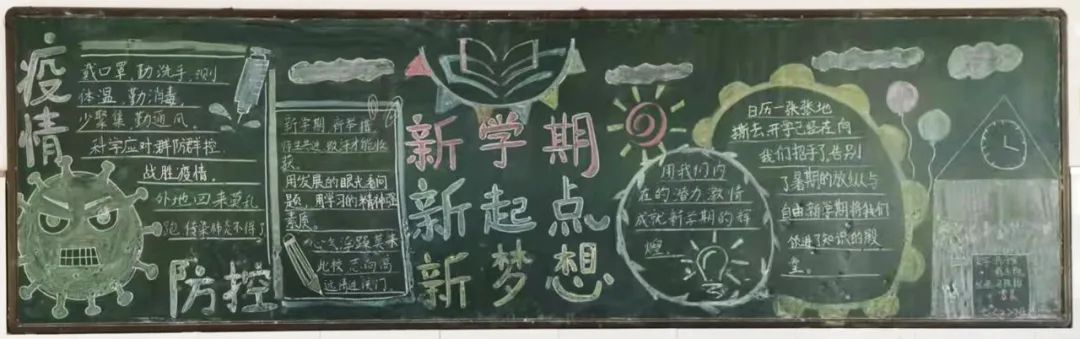 疫情
戴口罩,勤洗手,测
体温,勤消毒,
少聚集,勤通风。
科学应对群防群控
战胜疫情。
外地回来莫乱
跑,传染肺炎不得了
防控
新学期,新举措
获。
用发展的眼光看问
题,用学习的精神强
素质。
心气浮躁莫来
此校,志向高
远请进该门
新学期
新起点
新梦想
用我们内
在的潜力,激情
成就新学期的辉
煌。
日历一张张地
撕去,开学已经走向
我们招手了,告别
了暑期的放纵与
自由,新学期将我们
领进了知识的殿
堂。